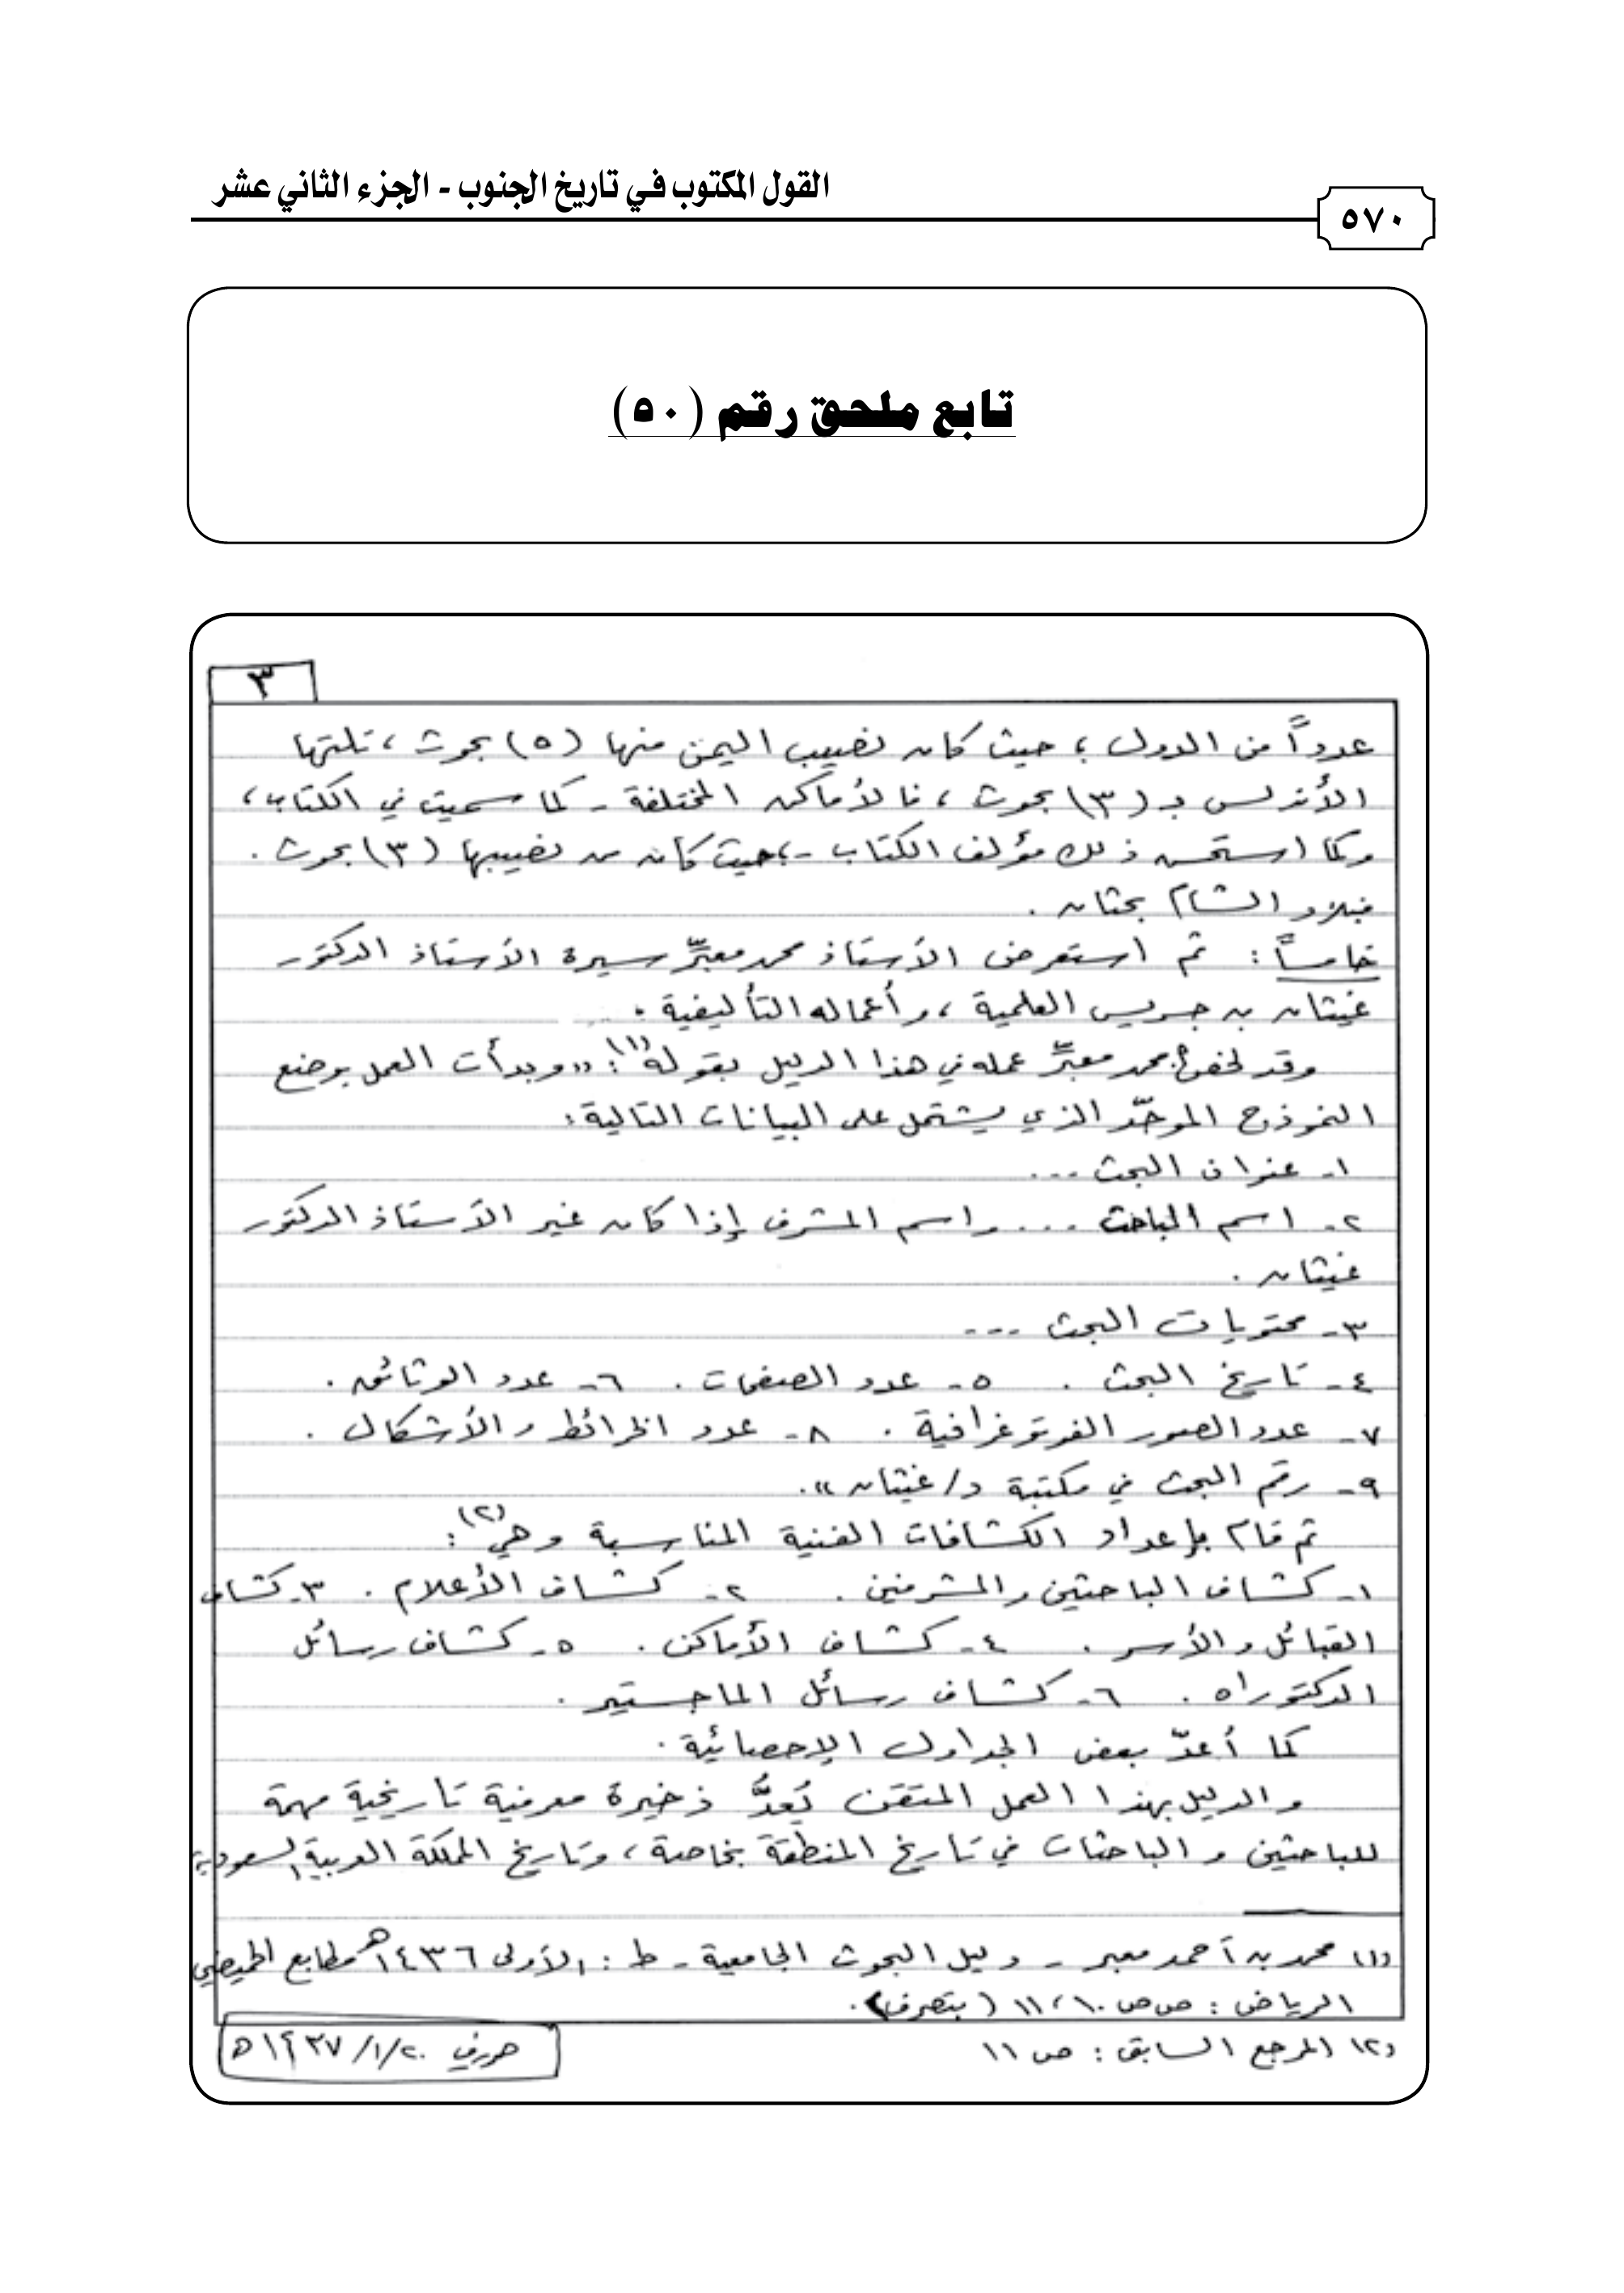 القول المكتوب في تاريخ الجنوب - الجزء الثاني عشر
٥٧٠
تابع ملحق رقم (٥٠)
٣
عدداً من الدول ؛ حيث كان نصيب اليمن منها (٥) بحوث ، تلتها
الأندلس بـ (٣) بحوث ، فالأماكن المختلفة - كما سميت في الكتاب ،
وكما استحسن ذلك مؤلف الكتاب - ؛ حيث كان من نصيبها (٣) بحوث .
فبلاد الشام بحثان .
خامساً : ثم استعرض الأستاذ محمد معبِّر سيرة الأستاذ الدكتور
غيثان بن جريس العلمية ، وأعماله التأليفية .
وقد لخص أ. محمد معبِّر عمله في هذا الدليل بقوله(١) : « وبدأت العمل بوضع
النموذج الموحّد الذي يشتمل على البيانات التالية :
١- عنوان البحث ...
٢- اسم الباحث ... واسم المشرف إذا كان غير الأستاذ الدكتور
غيثان .
٣- محتويات البحث ...
٤- تاريخ البحث . ٥- عدد الصفحات . ٦- عدد الوثائق .
٧- عدد الصور الفوتوغرافية . ٨- عدد الخرائط والأشكال .
٩- رقم البحث في مكتبة د/ غيثان » .
ثم قام بإعداد الكشافات الفنية المناسبة وهي(٢) :
١- كشاف الباحثين والمشرفين . ٢- كشاف الأعلام . ٣- كشاف
القبائل والأسر . ٤- كشاف الأماكن . ٥- كشاف رسائل
الدكتوراه . ٦- كشاف رسائل الماجستير .
كما أعدّ بعض الجداول الإحصائية .
والدليل بهذا العمل المتقن يُعدُّ ذخيرة معرفية تاريخية مهمة
للباحثين والباحثات في تاريخ المنطقة بخاصة ، وتاريخ المملكة العربية السعودية
(١) محمد بن أحمد معبر - دليل البحوث الجامعية - ط : الأولى ١٤٣٦هـ مطابع الحميضي
الرياض : ص ص ١٠ ، ١١ ( بتصرف ) .
(٢) المرجع السابق : ص ١١
٢٠/ ١/ ١٤٣٧ هـ